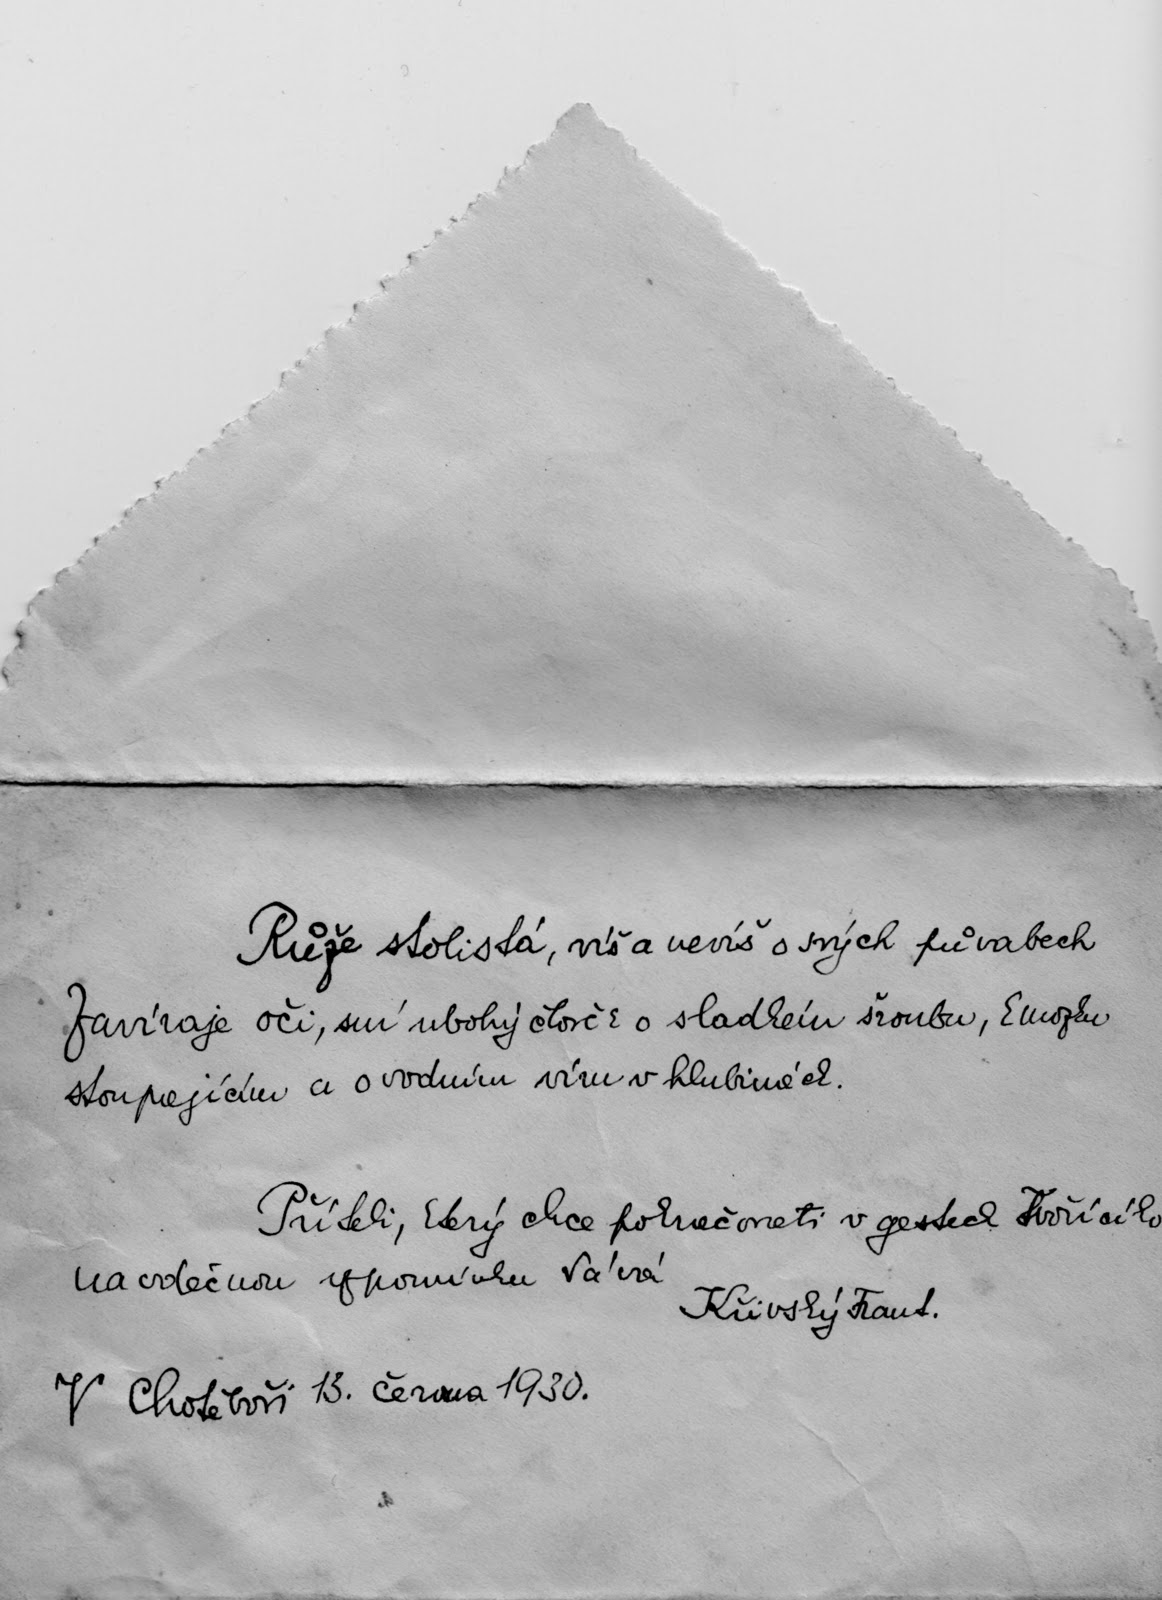 Růže stolistá, víš a nevíš o svých půvabech
Zavíraje oči, sní ubohý člověk o sladkém šroubu, k mozku
stoupajícím a o vodním víru v hlubinách.
Příteli, který chce pokračovati v gestech Tvořícího
na vděčnou vzpomínku
Křivský Frant.
V Chotěboři 13. června 1930.